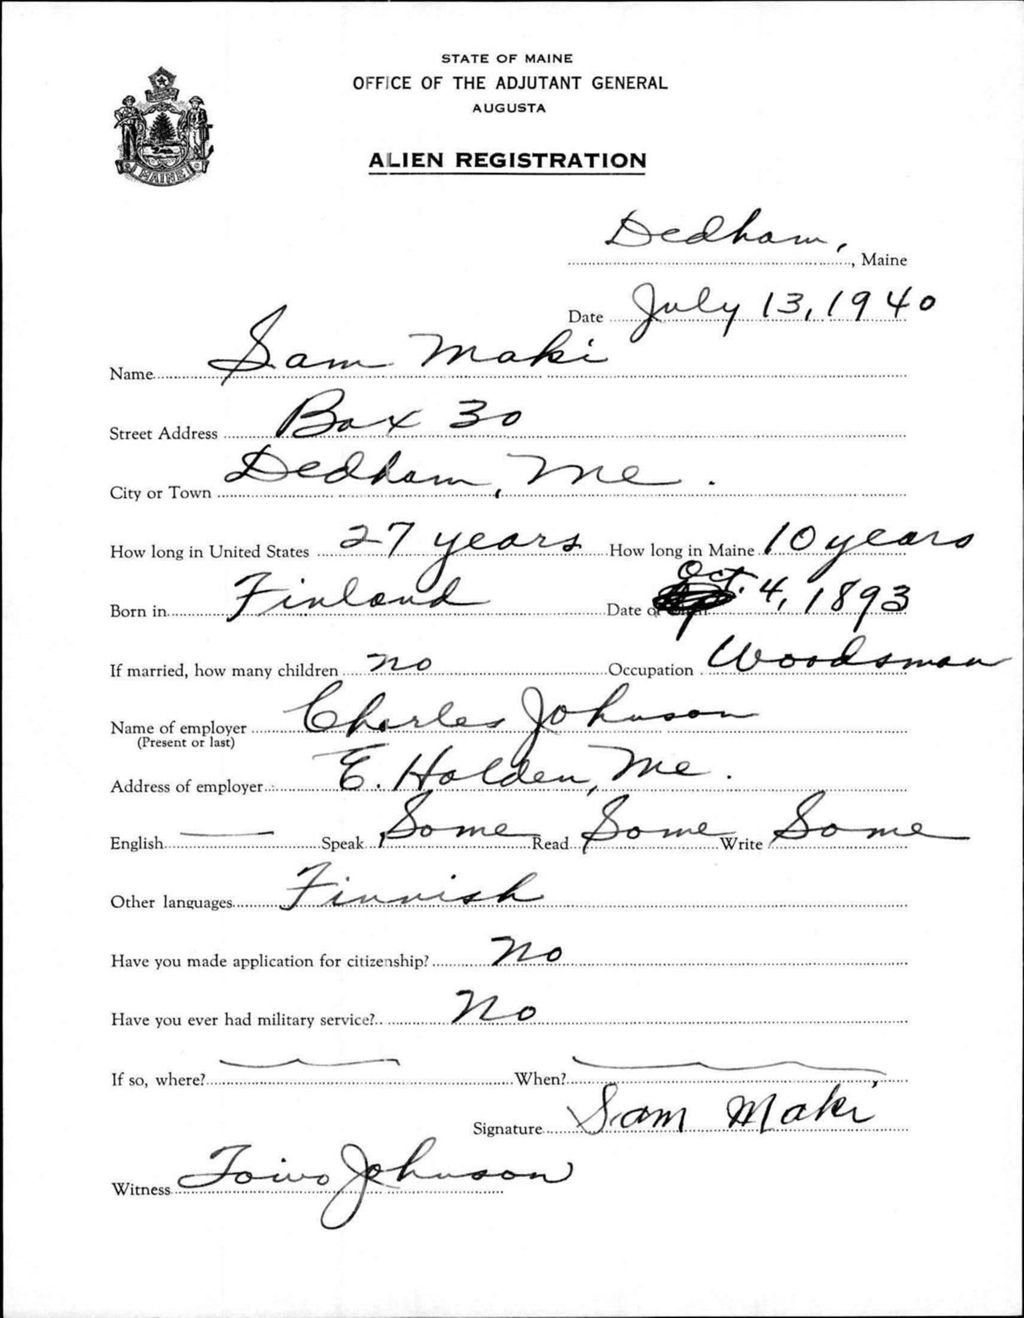 STATE OF MAINE
OFFICE OF THE ADJUTANT GENERAL
AUGUSTA
ALIEN REGISTRATION
MAINE
Dedham, , Maine
Date July 13, 1940
Name Sam Maki
Street Address Box 30
City or Town Dedham, Me.
How long in United States 27 years How long in Maine 10 years
Born in Finland Date of Oct. 4, 1893
If married, how many children no Occupation Woodsman
Name of employer Charles Johnson
(Present or last)
Address of employer E. Holden, Me.
English Speak Some Read Some Write Some
Other languages Finnish
Have you made application for citizenship? No
Have you ever had military service? No
If so, where? When?
Signature Sam Maki
Witness Toivo Johnson